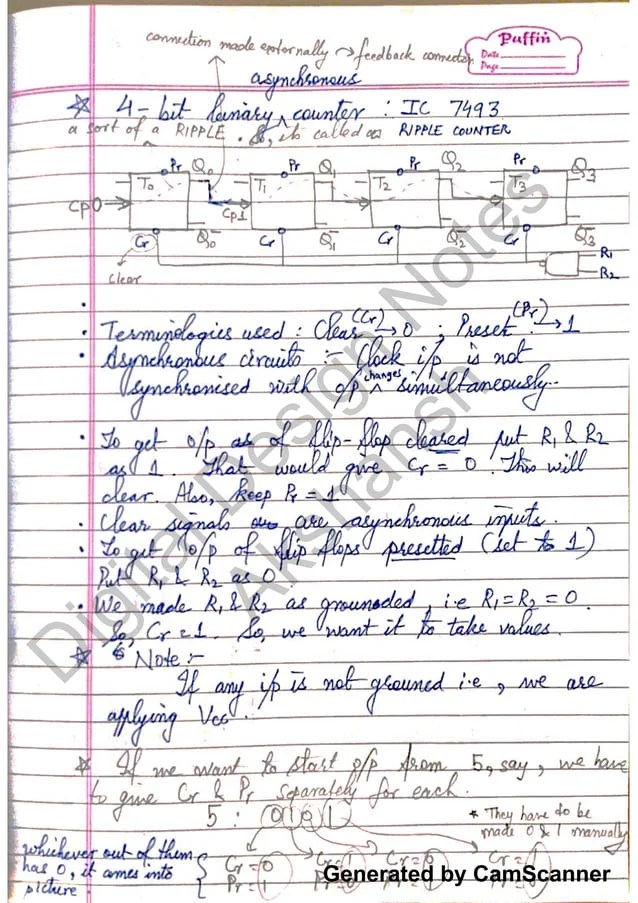 Puffin
Date
Page
connection made externally → feedback connector
asynchronous
4-bit binary ^ counter : IC 7493
a sort of a RIPPLE . So, its called as RIPPLE COUNTER
Pr Q0 Pr Q1 Pr Q2 Pr Q3
T0 T1 T2 T3
CP0 CP1
Cr Q̅0 Cr Q̅1 Cr Q̅2 Cr Q̅3
R1
R2
clear
• Terminologies used : Clear (Cr) → 0 ; Preset (Pr) → 1
• Asynchronous circuits :- Clock i/p is not
synchronised with o/p ^ changes simultaneously.
• To get o/p as of flip-flop cleared put R1 & R2
as 1. That would give Cr = 0. This will
clear. Also, keep Pr = 1
• Clear signals are asynchronous inputs.
• To get o/p of flip flops presetted (set to 1)
Put R1 & R2 as 0
• We made R1 & R2 as grounoded, i.e R1 = R2 = 0.
So, Cr = 1. So, we want it to take values.
Note :-
If any i/p is not grouned i.e, we are
applying Vcc.
If we want to start o/p from 5, say, we have
to give Cr & Pr separately for each.
5 : 0 1 0 1
* They have to be
made 0 & 1 manually
whichever out of them
has 0, it comes into
picture.
Cr = 0 Cr = 1 Cr = 0 Cr = 1
Pr = 1 Pr = 0 Pr = 1 Pr = 0
Digital Design Notes
Akshansh
Generated by CamScanner